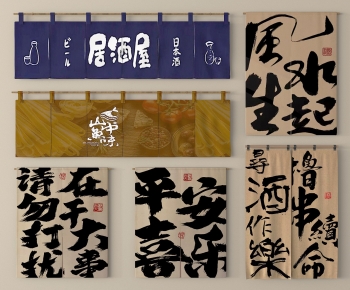 ビール
居酒屋
日本酒
風生
水起
在干大事
请勿打扰
平安
喜乐
尋酒作樂
擼串續命